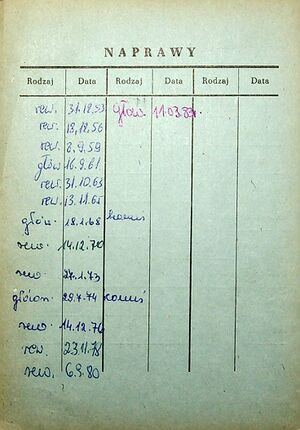 NAPRAWY
Rodzaj Data Rodzaj Data Rodzaj Data
rew. 31.12.53 głów. 11.03.83r.
rew. 18.12.56
rew. 8.9.59
głów 16.9.61
rew. 31.10.63
rew. 13.11.65
głów. 18.1.68
rew. 14.12.70
rew. 27.1.73
główn. 29.7.74
rew. 14.12.76
rew. 23.11.78
rew. 6.9.80